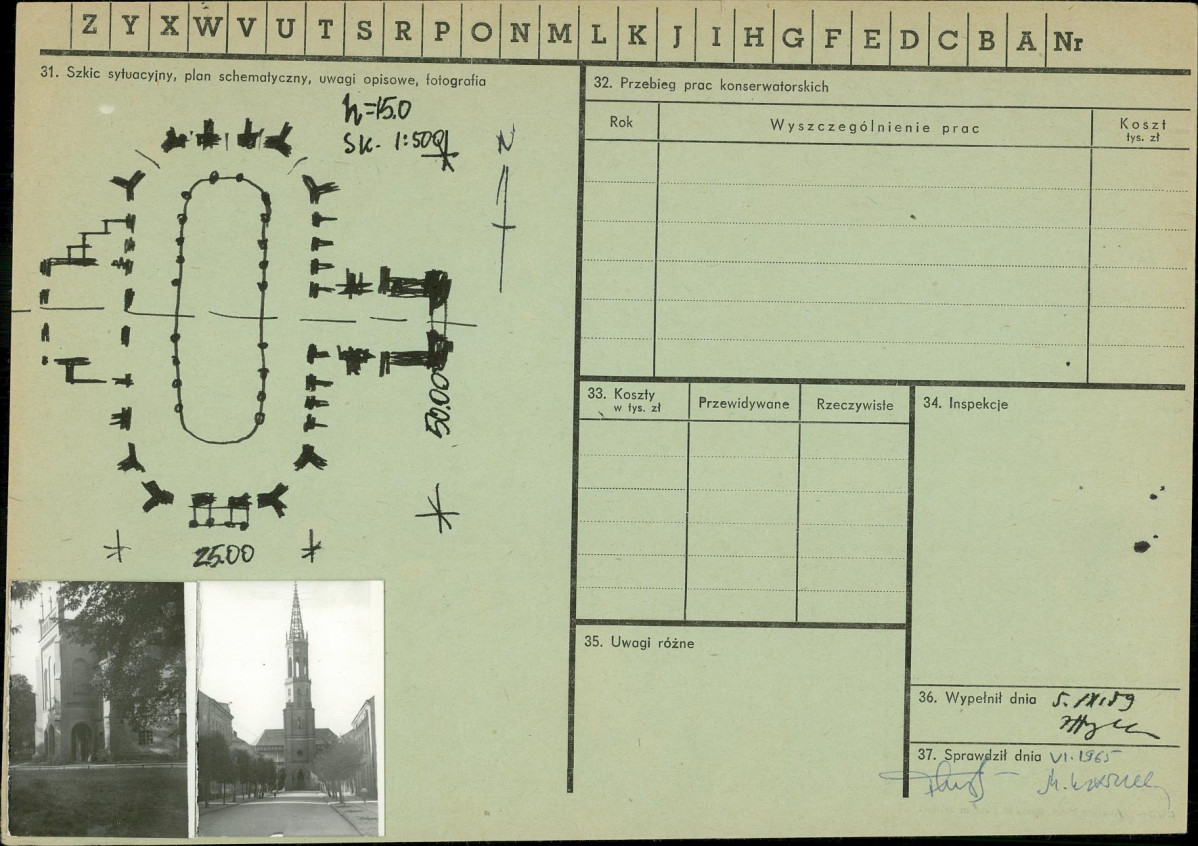 Z Y X W V U T S R P O N M L K J I H G F E D C B A Nr
31. Szkic sytuacyjny, plan schematyczny, uwagi opisowe, fotografia
h=15.0
SK. 1:500
N
50.00
25.00
32. Przebieg prac konserwatorskich
Rok Wyszczególnienie prac Koszt
tys. zł
33. Koszty
w tys. zł
Przewidywane Rzeczywiste
34. Inspekcje
35. Uwagi różne
36. Wypełnił dnia 5.IX.59
37. Sprawdził dnia VI.1965